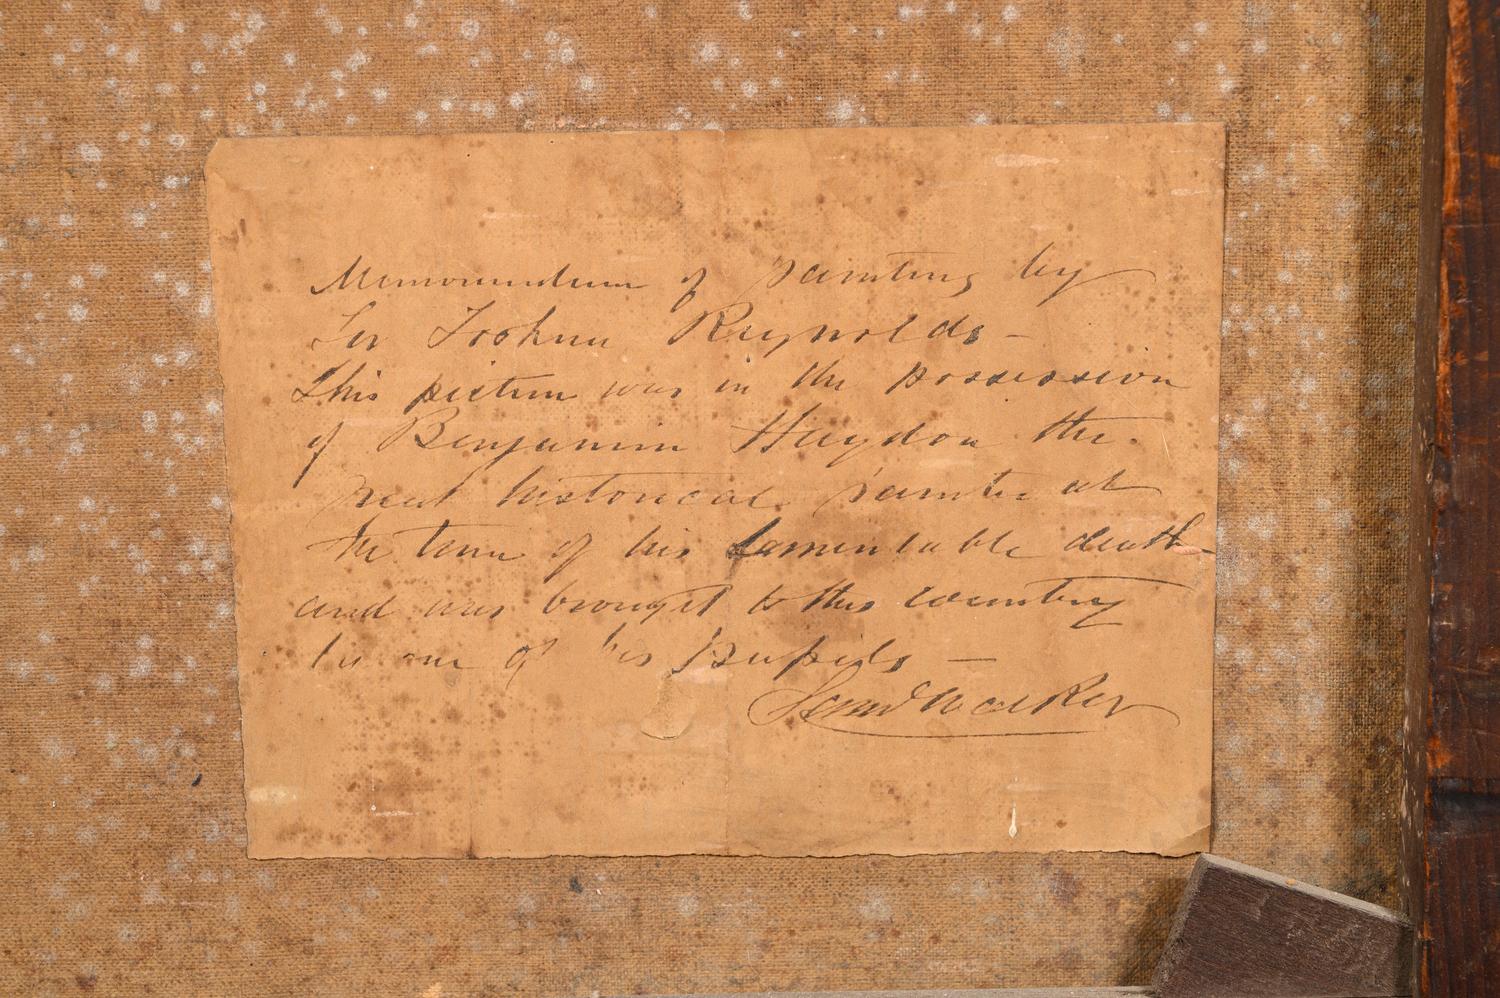 Memorundum of painting by
Sir Joshua Reynolds —
This picture was in the possession
of Benjamin Haydon the
great historical painter at
the time of his lamentable death
and was brought to this country
by one of his pupils —
Saml Walker